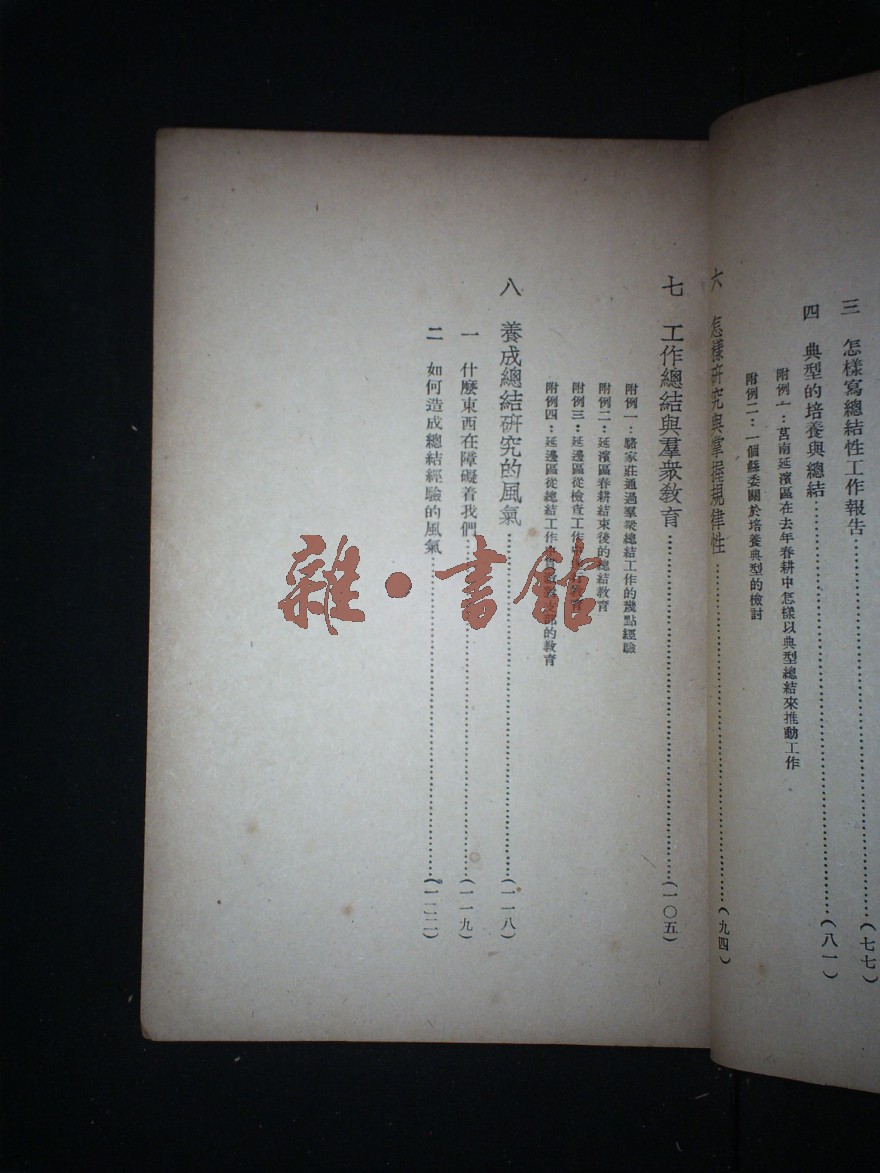 三 怎樣寫總結性工作報告……(七七)
四 典型的培養與總結……(八一)
附例一：莒南延濱區在去年春耕中怎樣以典型總結來推動工作
附例二：一個縣委關於培養典型的檢討
六 怎樣研究與掌握規律性……(九四)
七 工作總結與羣衆教育……(一〇五)
附例一：駱家莊通過羣衆總結工作的幾點經驗
附例二：延濱區春耕結束後的總結教育
附例三：延邊區從檢查工作中
附例四：延邊區從總結工作 的教育
八 養成總結研究的風氣……(一一八)
一 什麼東西在障礙着我們……(一一九)
二 如何造成總結經驗的風氣……(一二二)
雜·書館